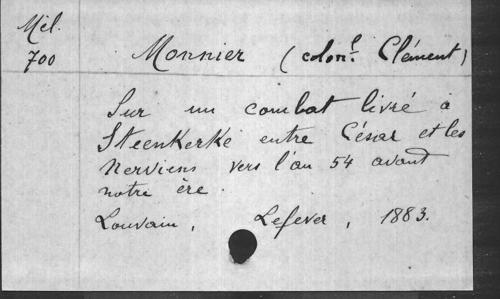 Mél.
700
Monnier (colonel Clément)
Sur un combat livré à
Steenkerke entre César et les
Nerviens vers l'an 54 avant
notre ère.
Louvain, Lefever, 1883.